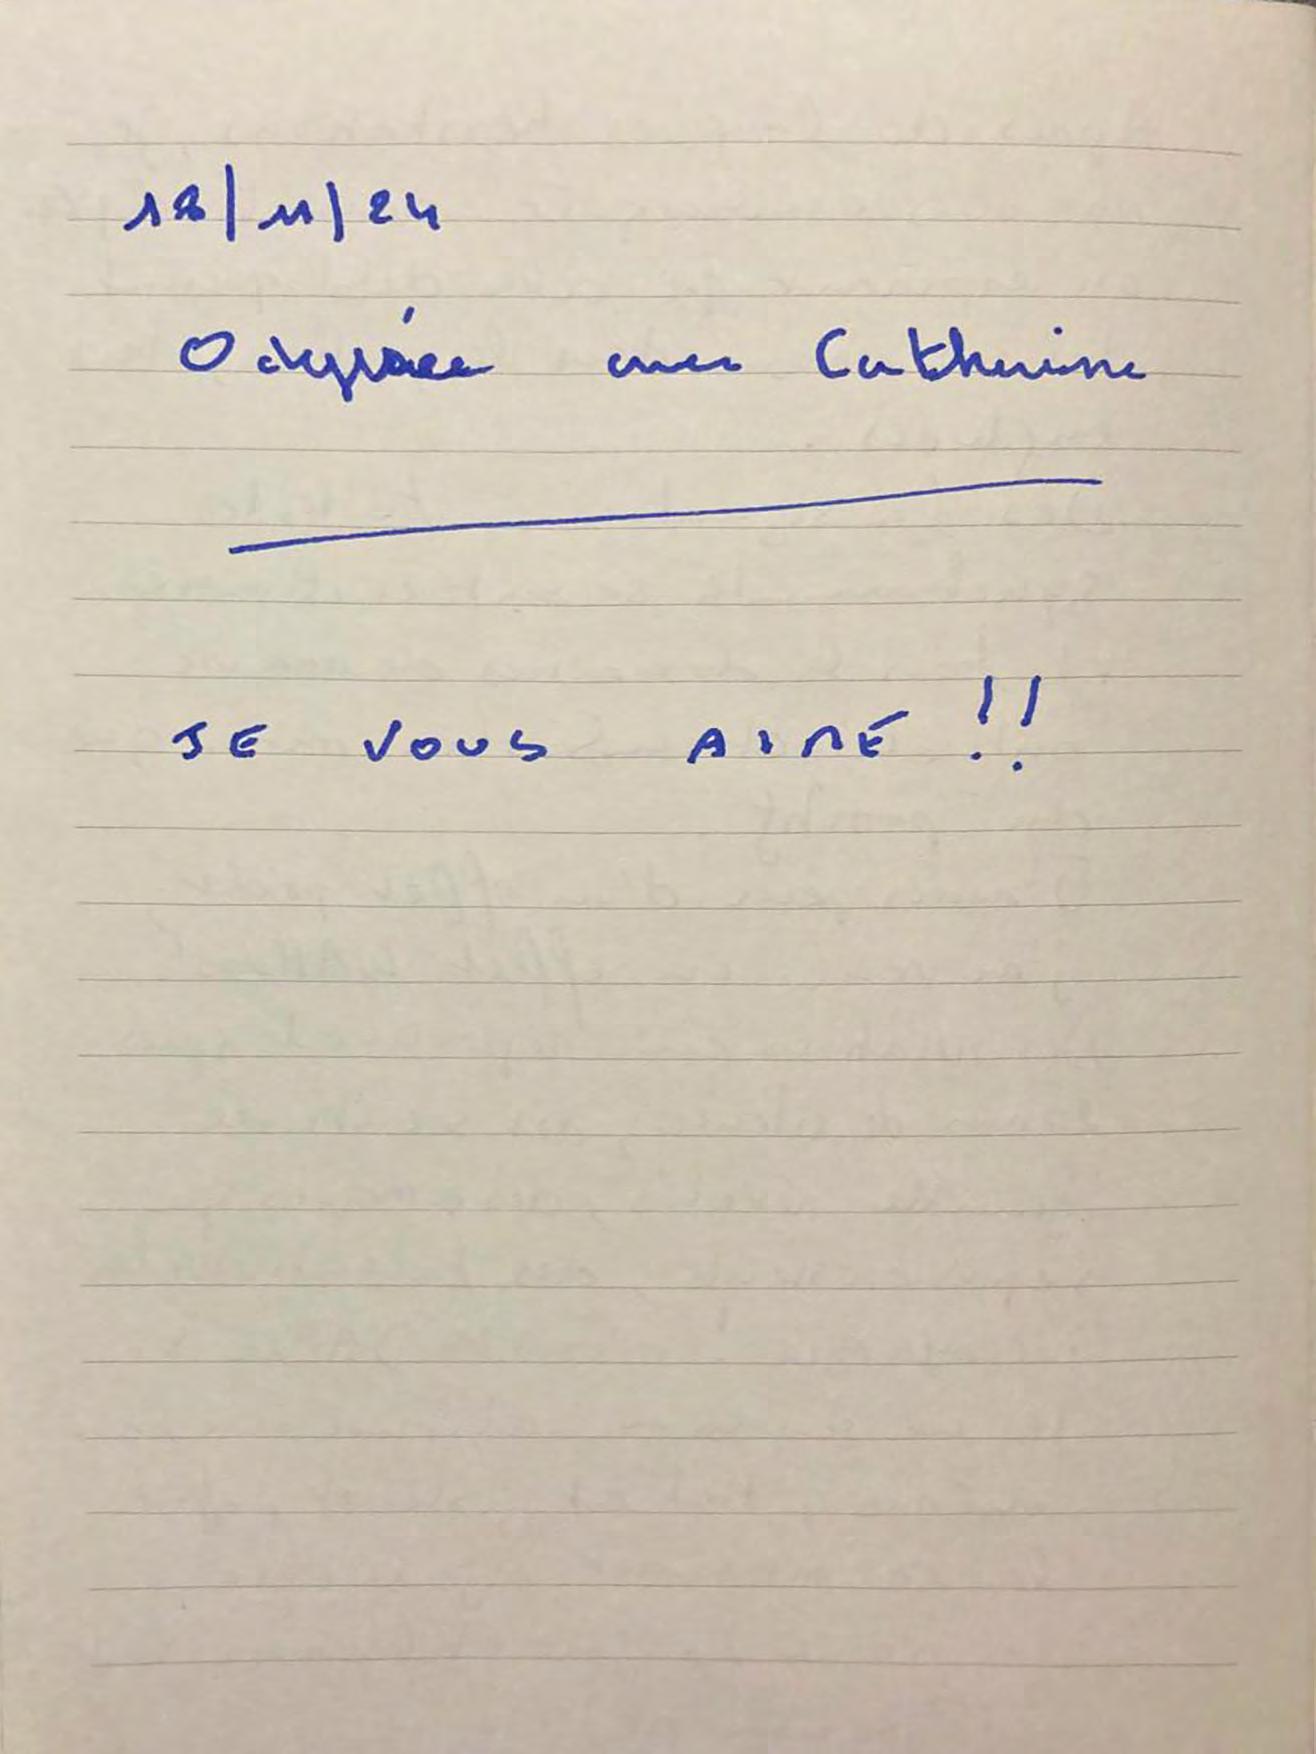 18/11/24
Odyssée avec Catherine
JE VOUS AIME !!